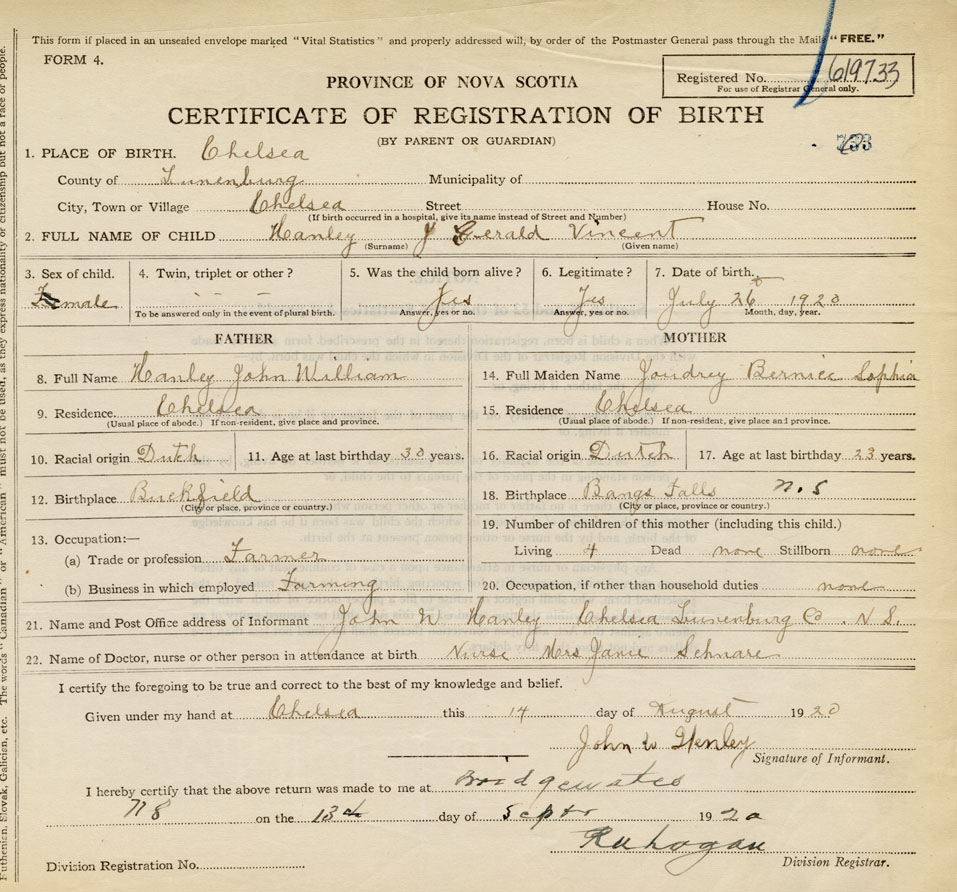 This form if placed in an unsealed envelope marked "Vital Statistics" and properly addressed will, by order of the Postmaster General pass through the Mails "FREE."
FORM 4.
Registered No. 619733
For use of Registrar General only.
PROVINCE OF NOVA SCOTIA
CERTIFICATE OF REGISTRATION OF BIRTH
(BY PARENT OR GUARDIAN)
733
1. PLACE OF BIRTH. Chelsea
County of Lunenburg Municipality of
City, Town or Village Chelsea Street House No.
(If birth occurred in a hospital, give its name instead of Street and Number)
2. FULL NAME OF CHILD Hanley J Gerald Vincent
(Surname) (Given name)
3. Sex of child. 4. Twin, triplet or other? 5. Was the child born alive? 6. Legitimate? 7. Date of birth.
male Yes Yes July 26 1920
To be answered only in the event of plural birth. Answer, yes or no. Answer, yes or no. Month, day, year.
FATHER
8. Full Name Hanley John William
9. Residence Chelsea
(Usual place of abode.) If non-resident, give place and province.
10. Racial origin Dutch 11. Age at last birthday 30 years.
12. Birthplace Buckfield
(City or place, province or country.)
13. Occupation:—
(a) Trade or profession Farmer
(b) Business in which employed Farming
MOTHER
14. Full Maiden Name Joudrey Bernice Sophia
15. Residence Chelsea
(Usual place of abode.) If non-resident, give place and province.
16. Racial origin Dutch 17. Age at last birthday 23 years.
18. Birthplace Bangs Falls N.S
(City or place, province or country.)
19. Number of children of this mother (including this child.)
Living 4 Dead none Stillborn none
20. Occupation, if other than household duties none
21. Name and Post Office address of Informant John W Hanley Chelsea Lunenburg Co. N.S.
22. Name of Doctor, nurse or other person in attendance at birth Nurse Mrs Janie Schnare
I certify the foregoing to be true and correct to the best of my knowledge and belief.
Given under my hand at Chelsea this 14 day of August 1920
John W Henley
Signature of Informant.
I hereby certify that the above return was made to me at Bridgewater
NS on the 13th day of Sept 1920
Division Registrar.
Division Registration No.
Ruthenian, Slovak, Galician, etc. The words "Canadian" or "American" must not be used, as they express nationality or citizenship but not a race or people.